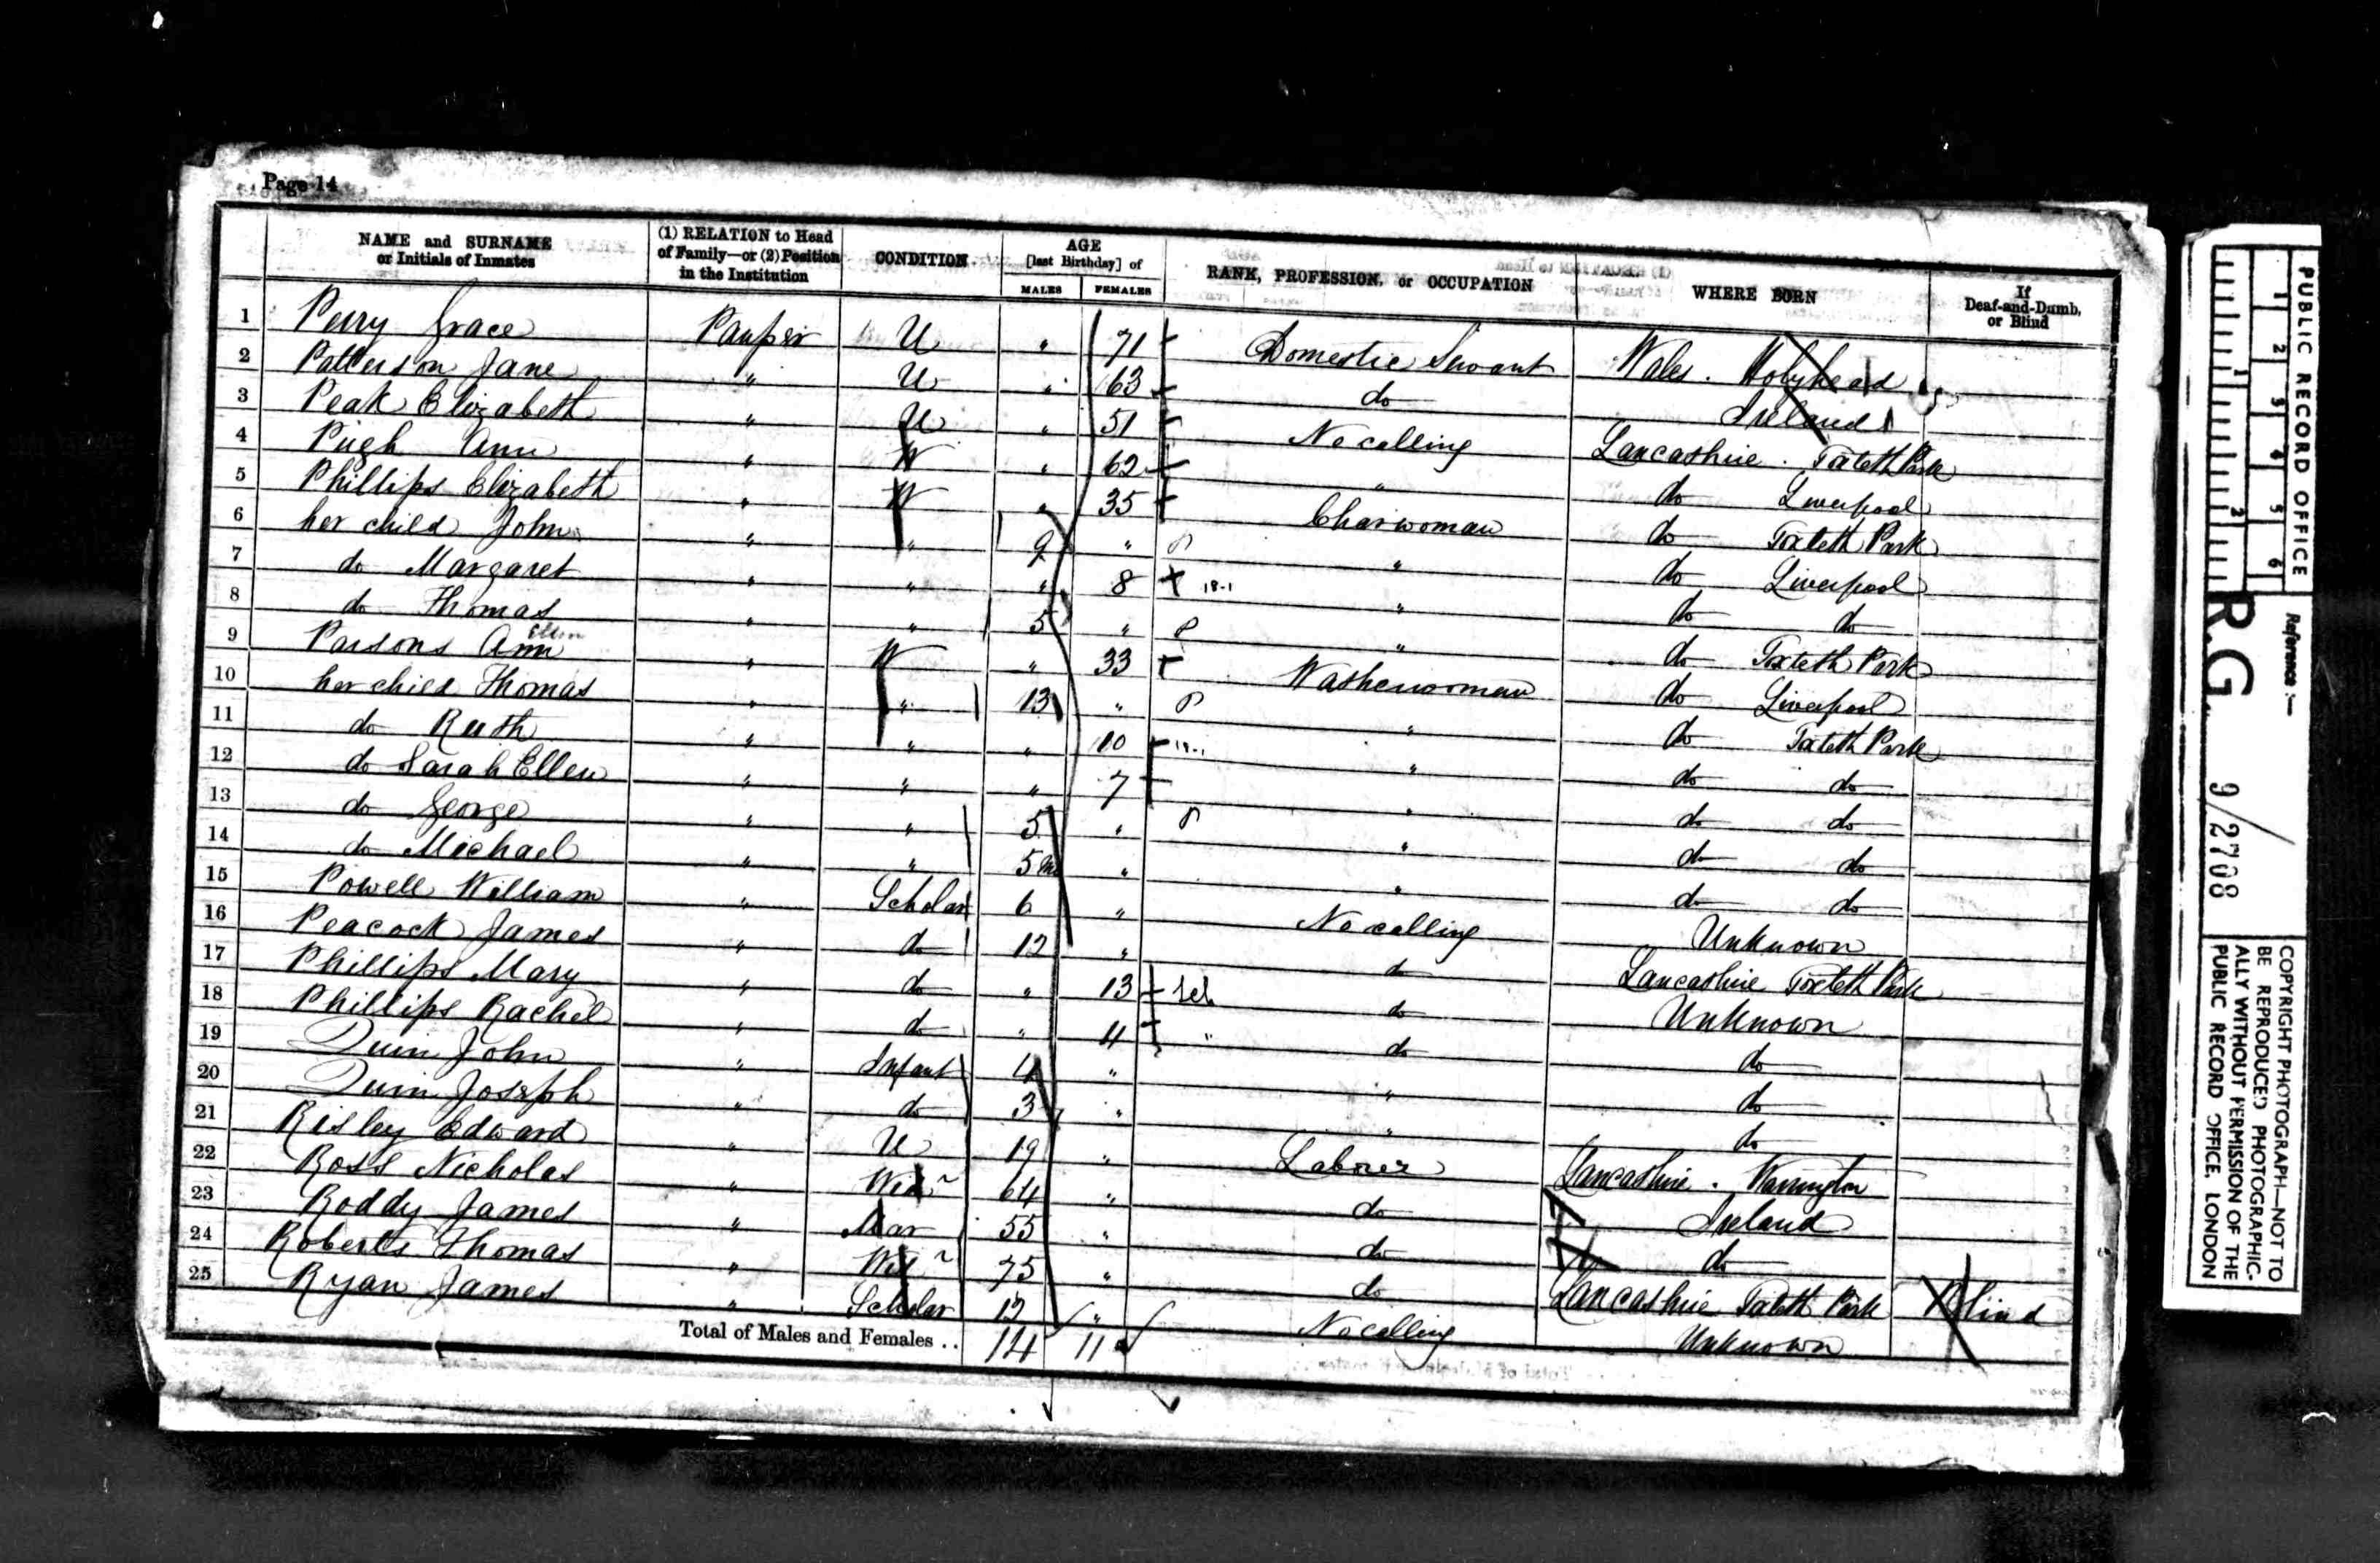 Page 14
NAME and SURNAME or Initials of Inmates | (1) RELATION to Head of Family—or (2) Position in the Institution | CONDITION | AGE [last Birthday] of MALES | FEMALES | RANK, PROFESSION, or OCCUPATION | WHERE BORN | If Deaf-and-Dumb, or Blind
1 Perry Grace Pauper U " 71 Domestic Servant Wales. Holyhead
2 Patterson Jane " U " 63 do Ireland
3 Peak Elizabeth " U " 51 No calling Lancashire. Toxteth Park
4 Pugh Ann " W " 62 " do Liverpool
5 Phillips Elizabeth " W " 35 Charwoman do Toxteth Park
6 her child John " " 9 " " do Liverpool
7 do Margaret " " " 8 18-1 " do do
8 do Thomas " " 5 " " do Toxteth Park
9 Parsons Ann Ellen " W " 33 Washerwoman do Liverpool
10 her child Thomas " " 13 " " do Toxteth Park
11 do Ruth " " " 10 " do do
12 do Sarah Ellen " " " 7 " do do
13 do George " " 5 " " do do
14 do Michael " " 5 m " " do do
15 Powell William " Scholar 6 " No calling Unknown
16 Peacock James " do 12 " do Lancashire Toxteth Park
17 Phillips Mary " do " 13 do Unknown
18 Phillips Rachel " do " 11 do do
19 Quin John " Infant 4 " " do
20 Quin Joseph " do 3 " " do
21 Risley Edward " U 19 " Laborer Lancashire. Warrington
22 Ross Nicholas " Wid r 64 " do Ireland
23 Roddy James " Mar 55 " do do
24 Roberts Thomas " Wid r 75 " do Lancashire Toxteth Park Blind
25 Ryan James " Scholar 12 " No calling Unknown
Total of Males and Females .. 14 11
PUBLIC RECORD OFFICE
1 2 3 4 5 6
1 2
Reference :—
R.G. 9/2708
COPYRIGHT PHOTOGRAPH—NOT TO
BE REPRODUCED PHOTOGRAPHIC-
ALLY WITHOUT PERMISSION OF THE
PUBLIC RECORD OFFICE, LONDON